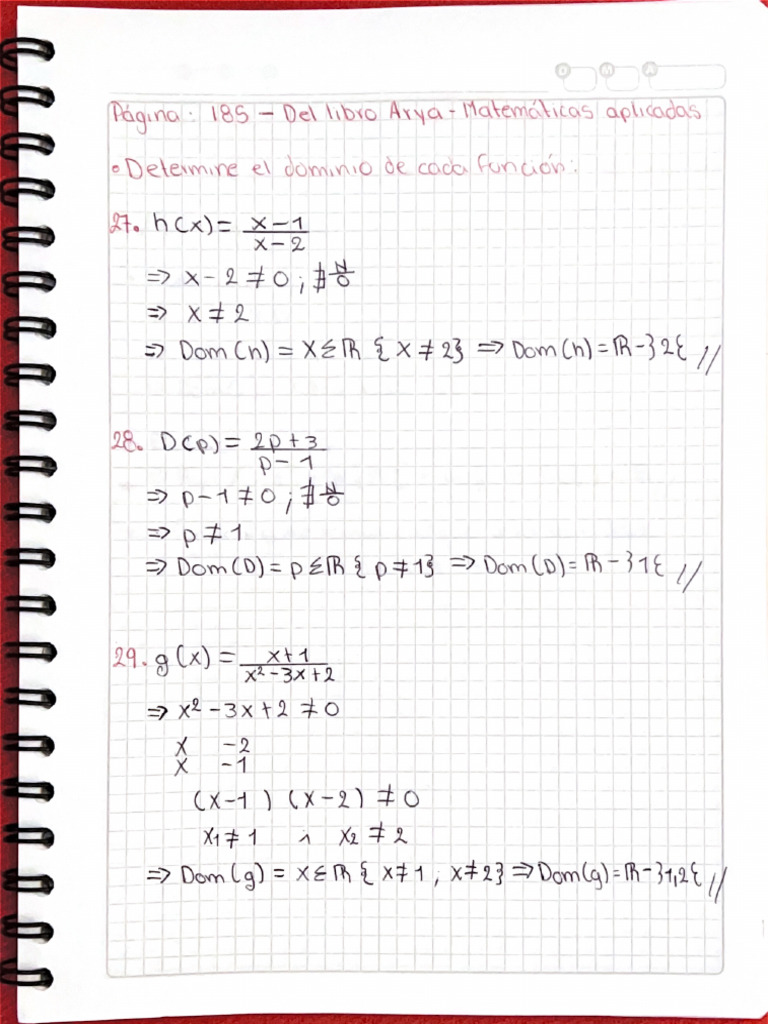 D M A
Página: 185 - Del libro Arya - Matemáticas aplicadas
• Determine el dominio de cada función:
27. h(x) = x-1 / x-2
=> x-2 ≠ 0 ; ∄ N/0
=> x ≠ 2
=> Dom(h) = x∈ℝ {x ≠ 2} => Dom(h) = ℝ - }2{ //
28. D(p) = 2p+3 / p-1
=> p-1 ≠ 0 ; ∄ N/0
=> p ≠ 1
=> Dom(D) = p∈ℝ {p ≠ 1} => Dom(D) = ℝ - }1{ //
29. g(x) = x+1 / x²-3x+2
=> x²-3x+2 ≠ 0
x -2
x -1
(x-1) (x-2) ≠ 0
x₁ ≠ 1 ∧ x₂ ≠ 2
=> Dom(g) = x∈ℝ {x ≠ 1, x ≠ 2} => Dom(g) = ℝ - }1,2{ //